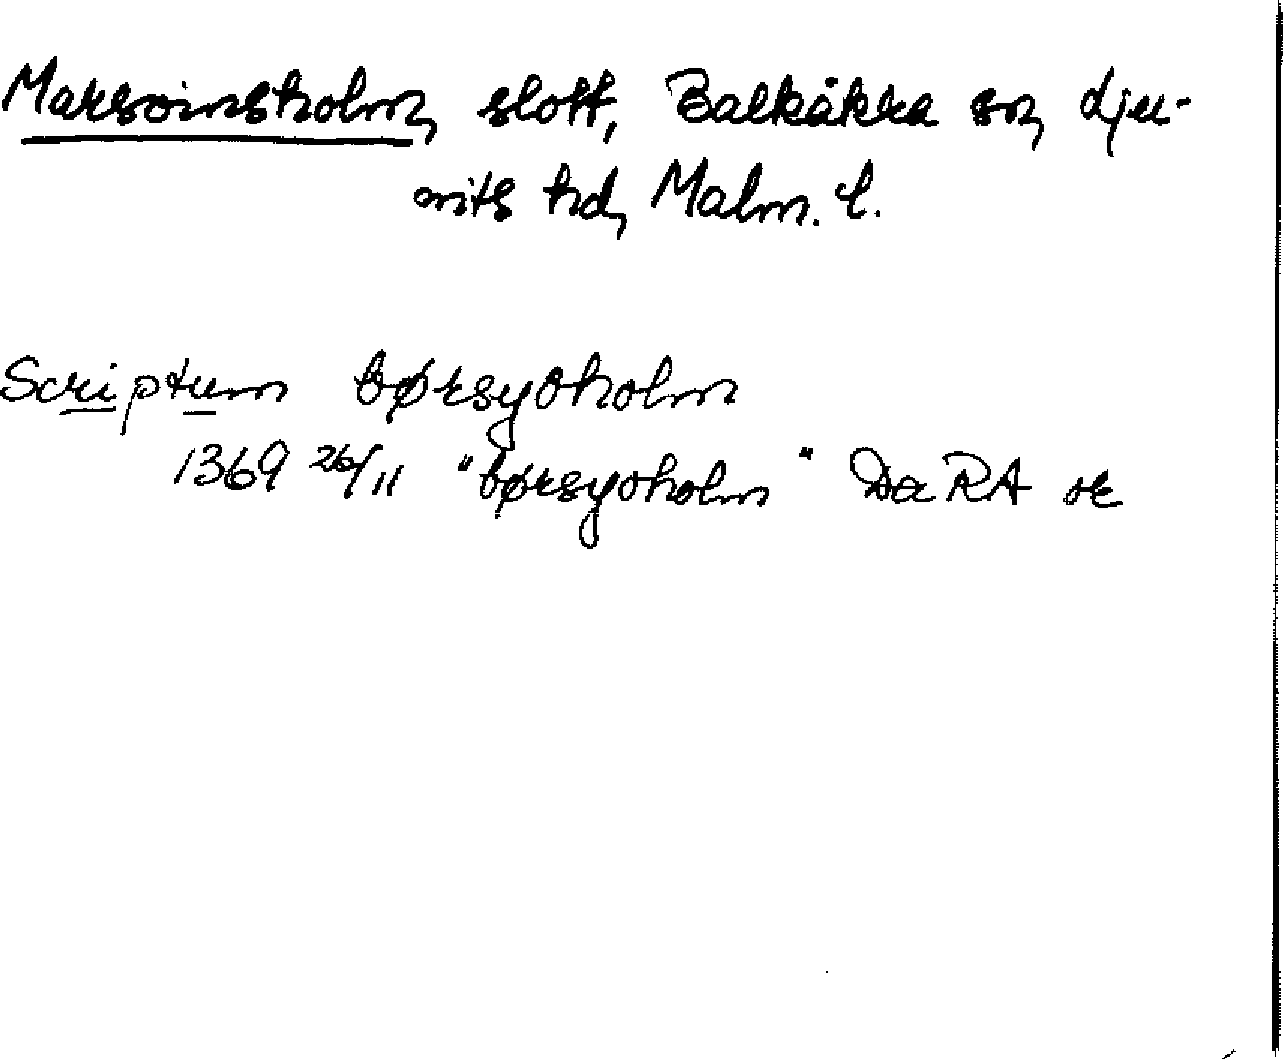 Marsvinsholm, slott, Balkåkra sn, Lju-
nits hd, Malm. l.
Scriptum børsyoholm
1369 26/11 "børsyoholm" Da RA or